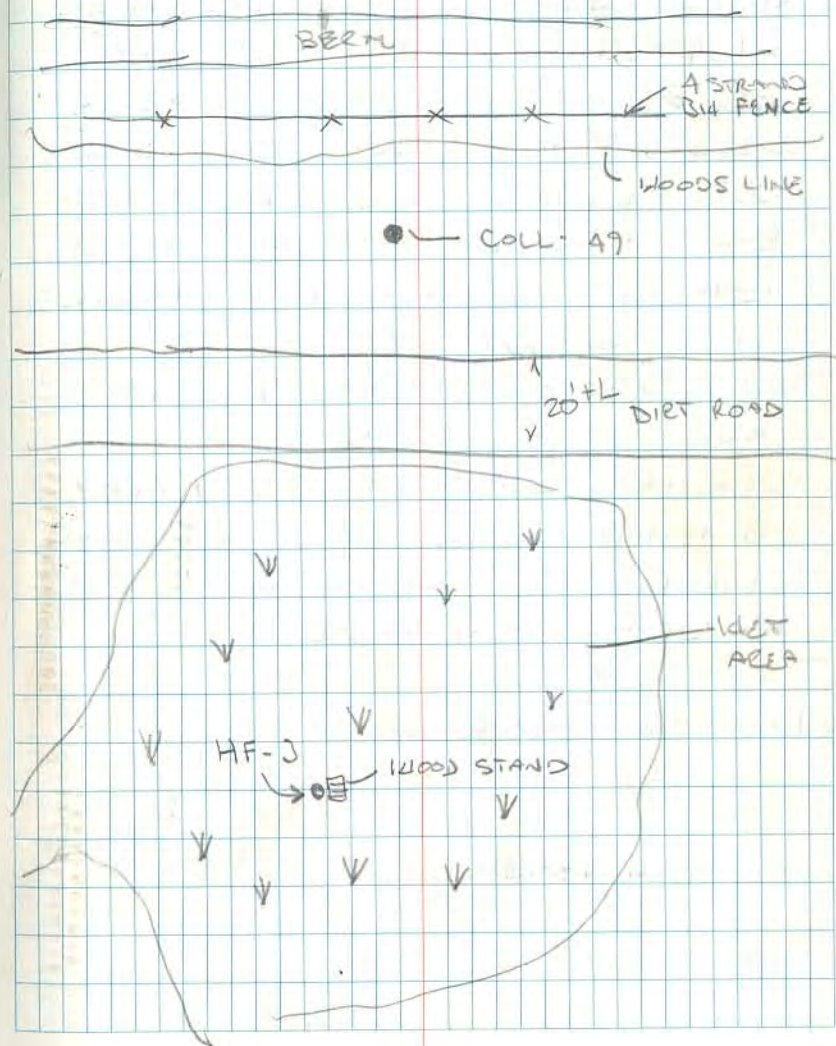 BERM
4 STRAND
BW FENCE
WOODS LINE
COLL-49
20'+L DIRT ROAD
WET
AREA
HF-J
WOOD STAND